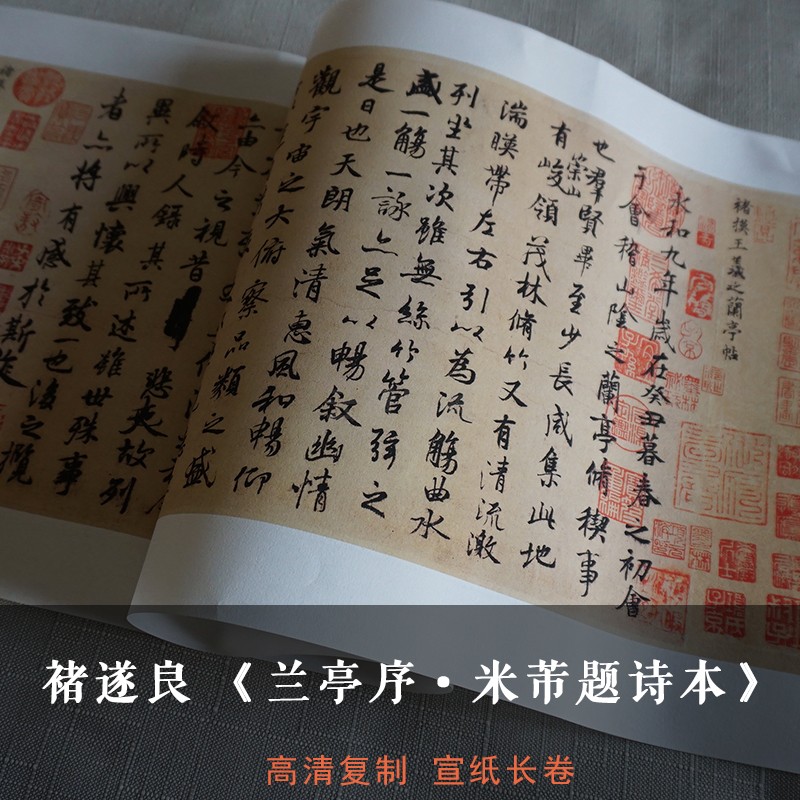 褚摸王羲之蘭亭帖
永和九年歲在癸丑暮春之初會
于會稽山陰之蘭亭脩稧事
也羣賢畢至少長咸集此地
有崇山峻領茂林脩竹又有清流激
湍暎帶左右引以為流觴曲水
列坐其次雖無絲竹管弦之
盛一觴一詠亦足以暢叙幽情
是日也天朗氣清惠風和暢仰
觀宇宙之大俯察品類之盛
由今之視昔悲夫故列
叙時人録其所述雖世殊事
異所以興懷其致一也後之攬
者亦將有感於斯文
褚遂良《兰亭序·米芾题诗本》
高清复制 宣纸长卷